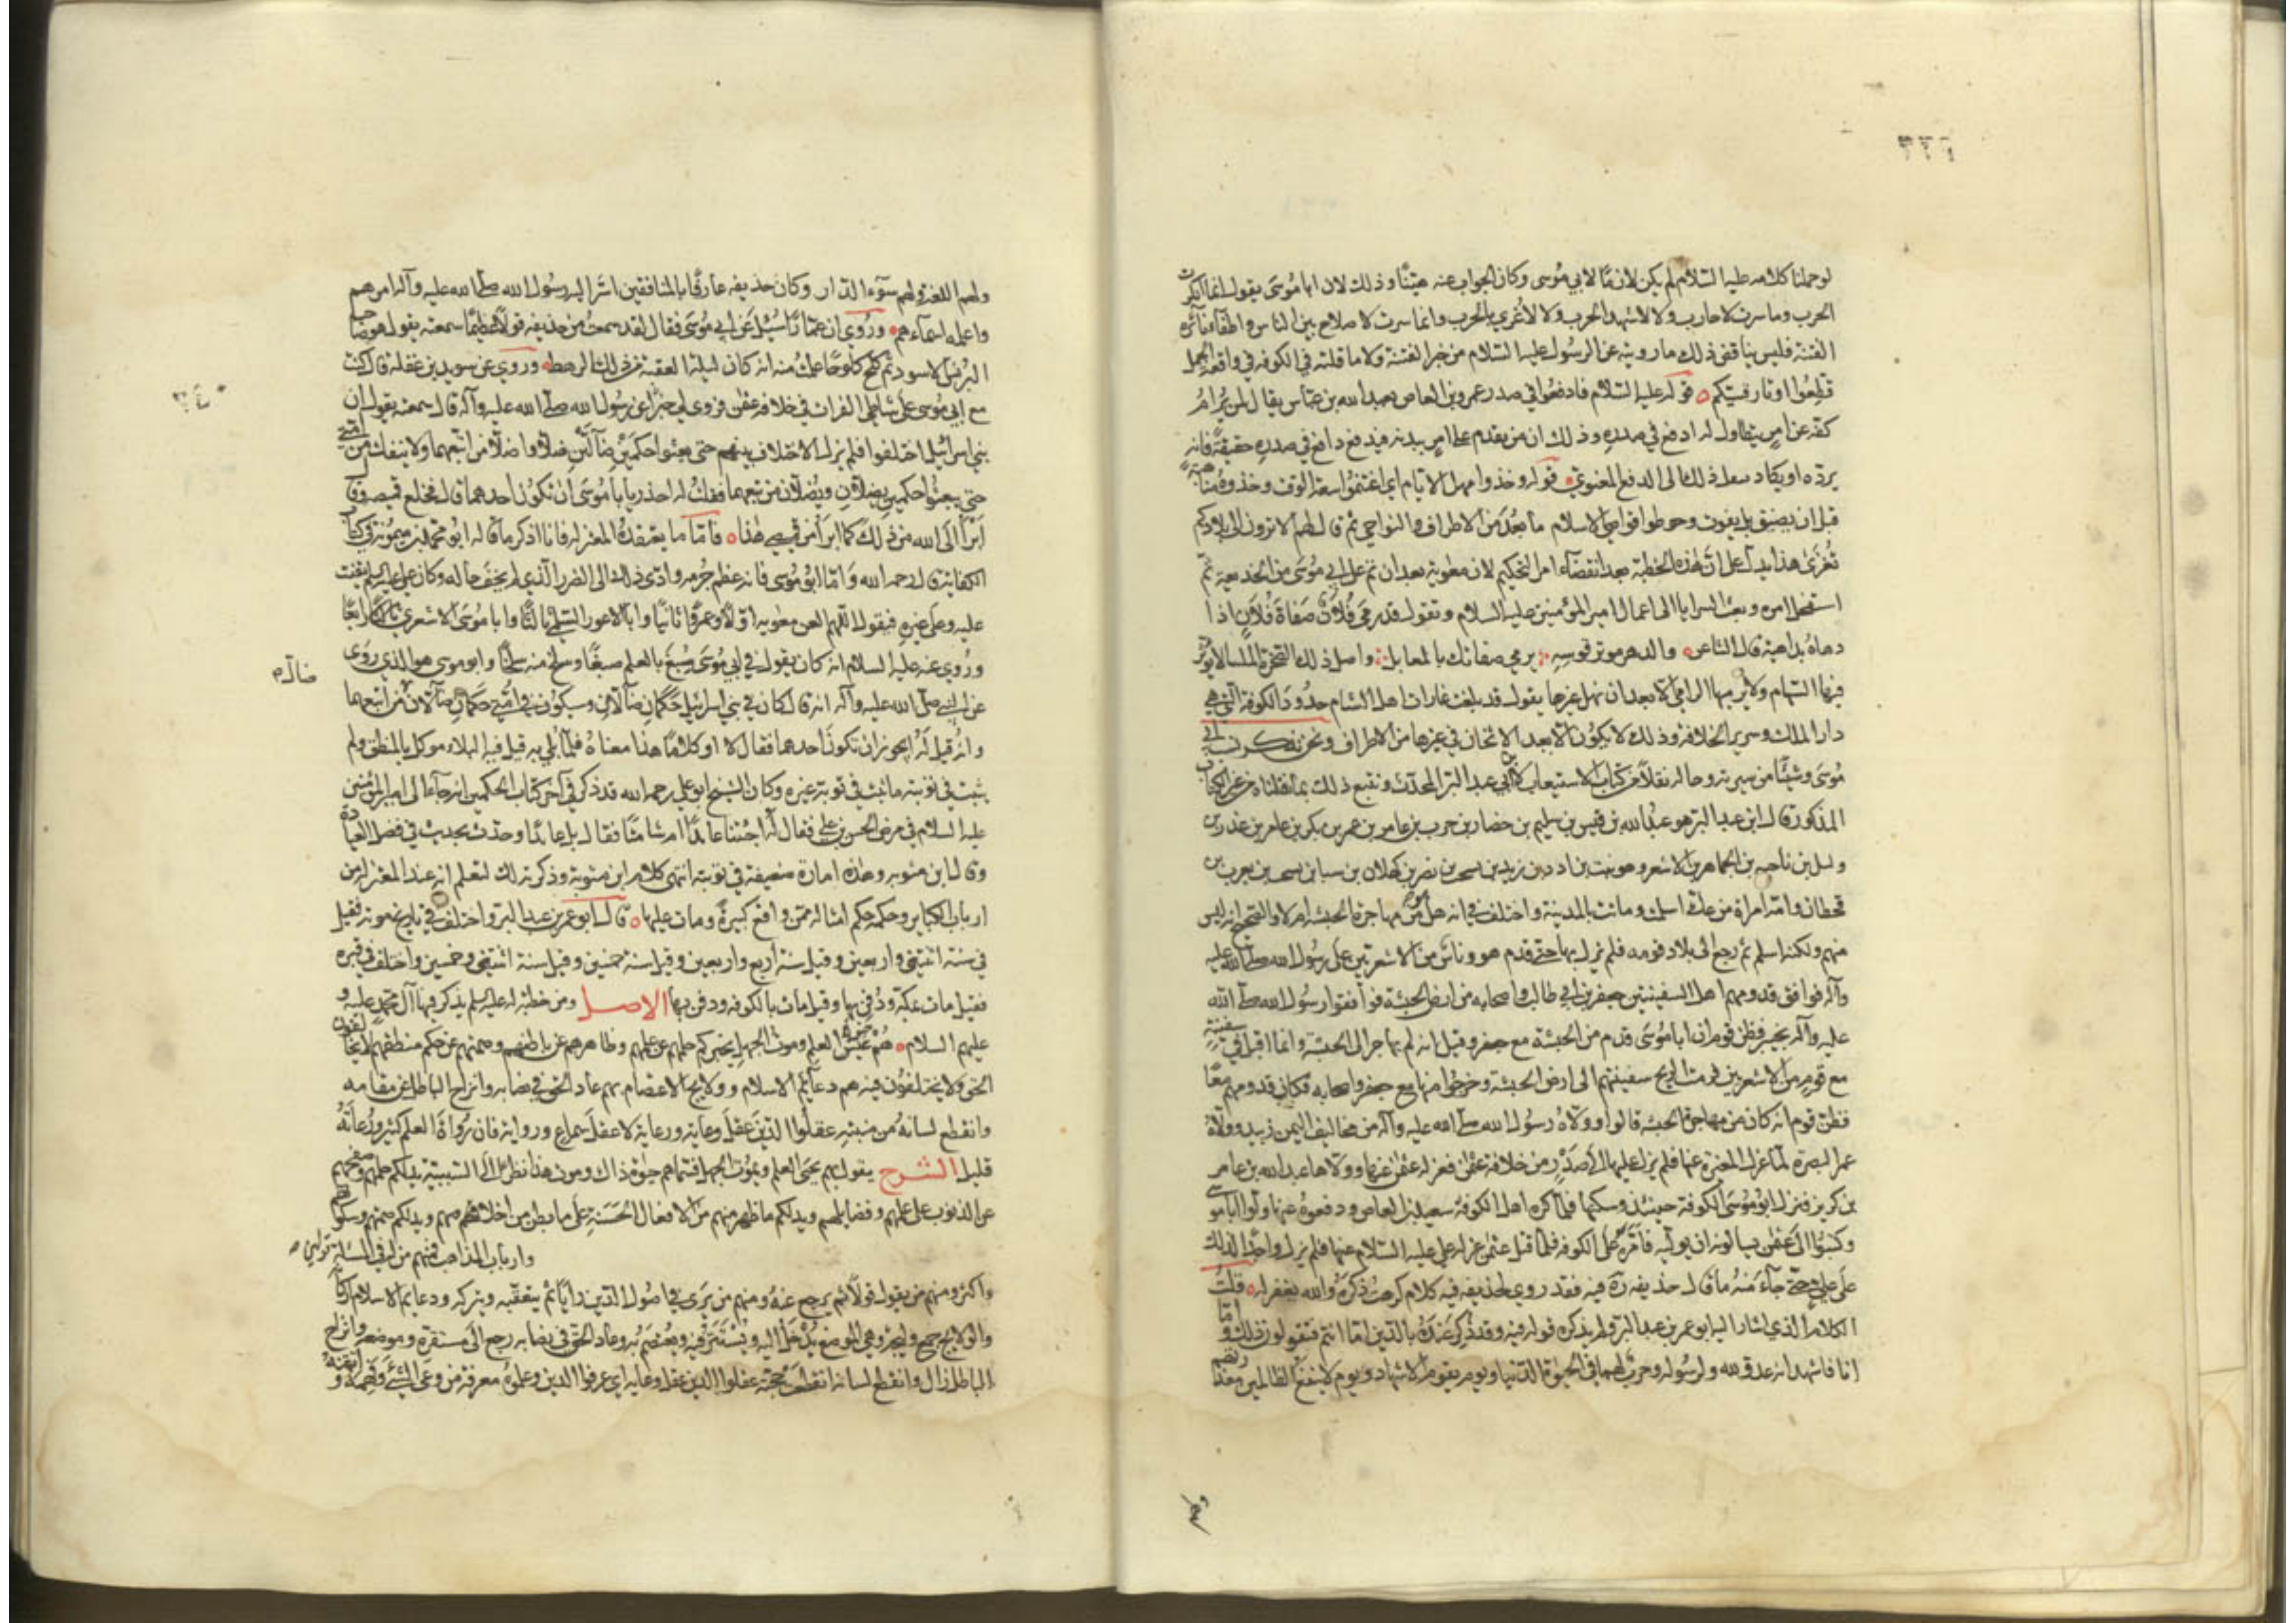 لو حملنا كلامه عليه السلام لم يكن لازمًا لابي موسى وكان الجواب عنه هيّنًا وذلك لان ابا موسى يقول انما انكرت
الحرب وما سرت لاحارب ولا لاشهد الحرب ولا لاغري بالحرب وانما سرت لاصلاح بين الناس واطفاء نائرة
الفتنة فليس يناقض ذلك ما رويته عن الرسول عليه السلام من خبر الفتنة ولا ما قلته في الكوفه في واقعة الجمل
قطّعوا اوتار قسيّكم قوله عليه السلام فادفعوا في صدر عمرو بن العاص بعبد الله بن عباس يقال لمن يُرام
كفه عن امر يتطاول له ادفع في صدره وذلك ان من يقدم على امر ببدنه فيدفع دافع في صدره حقيقة فانه
يردّه او يكاد فنقل ذلك الى الدفع المعنوي قوله وخذوا مهل الايام اي اغتنموا سعة الوقت وخذوه مناهبة
قبل ان يضيق بل يفوت وحوطوا قواصي الاسلام ما بعُد من الاطراف والنواحي ثم قال لهم الا ترون الى بلادكم
تُغزى هذا يدل على ان هذه الخطبة بعد انقضاء امر التحكيم لان معوية بعد ان تم على ابي موسى من الخديعة ثم
استعجل امره وبعث السرايا الى اعمال امير المؤمنين عليه السلام وتقول قد رمى فلان صفاة فلان اذا
دهاه بداهية قال الشاعر والدهر موتر قوسه يرمي صفاتك بالمعابل واصل ذلك الصخرة الملساء لا يؤثر
فيها السهام ولا يرميها الرامي الا بعد ان نبل غيرها يقول قد بلغت غارات اهل الشام حدود الكوفة التي هي
دار الملك وسرير الخلافة وذلك لا يكون الا بعد الاثخان في غيرها من الاطراف ونحن نذكر نسب ابي
موسى وشيئا من سيرته وحاله نقلًا من كتاب الاستيعاب لابن عبد البر المحدث ونتبع ذلك بما نقلناه من غير الكتاب
المذكور قال ابن عبد البر هو عبد الله بن قيس بن سليم بن حضار بن حرب بن عامر بن عمر بن بكر بن عامر بن عذر بن
وايل بن ناجيه بن الجماهر بن الاشعر وهو نبت بن ادد بن زيد بن يشجب بن عريب بن كهلان بن سبا بن يشجب بن يعرب بن
قحطان وامه امراة من عك اسلمت وماتت بالمدينة واختلف في انه هل هو من مهاجرة الحبشه ام لا والصحيح انه ليس
منهم ولكنه اسلم ثم رجع الى بلاد قومه فلم يزل بها حتى قدم هو وناس من الاشعريين على رسول الله صلى الله عليه
وآله فوافق قدومهم اهل السفينتين جعفر بن ابي طالب واصحابه من ارض الحبشة فوافقوا رسول الله صلى الله
عليه وآله بخيبر فظن قوم ان ابا موسى قدم من الحبشة مع جعفر وقيل انه لم يهاجر الى الحبشة وانما اقبل في سفينة
مع قوم من الاشعريين فرمت الريح سفينتهم الى ارض الحبشة وخرجوا منها مع جعفر واصحابه فكان قدومهم معًا
فظن قوم انه كان من مهاجرة الحبشه قالوا وولاه رسول الله صلى الله عليه وآله من مخاليف اليمن زبيد وولاه
عمر البصره لما عزل المغيرة عنها فلم يزل عليها الى صدر من خلافة عثمن فعزله عثمن عنها وولاها عبد الله بن عامر
بن كريز فنزل ابو موسى الكوفة حينئذ وسكنها فلما كره اهل الكوفة سعيد بن العاص ودفعوه عنها ولّوا ابا موسى
وكتبوا الى عثمن يسالونه ان يوليه فاقره على الكوفه فلما قتل عثمن عزله علي عليه السلام عنها فلم يزل واجدًا لذلك
على علي حتى جاء منه ما قال حذيفه ره فيه فقد روي لحذيفه فيه كلام كرهت ذكره والله يغفر له قلتُ
الكلام الذي اشار اليه ابو عمر بن عبد البر ولم يذكره قوله فيه وقد ذُكر عنده بالدين اما انتم فتقولون ذلك واما
انا فاشهد انه عدو لله ولرسوله وحرب لهما في الحيوة الدنيا ويوم يقوم الاشهاد ويوم لا ينفع الظالمين معذرتهم
ولهم اللعنة ولهم سوء الدار وكان حذيفه عارفًا بالمنافقين اسرّ اليه رسول الله صلى الله عليه وآله امرهم
واعلمه اسماءهم وروي ان عمّارًا سُئل عن ابي موسى فقال لقد سمعت من حذيفه قولًا عظيمًا سمعته يقول صاحب
البرنس الاسود ثم كلح كلوحًا علمت منه انه كان ليلة العقبة من ذلك الرهط وروي عن سويد بن غفله قال كنت
مع ابي موسى على شاطي الفرات في خلافة عثمن فروى لي خبرًا عن رسول الله صلى الله عليه وآله قال سمعته يقول ان
بني اسرائيل اختلفوا فلم يزل الاختلاف بينهم حتى بعثوا حكمين ضالّين ضلّا واضلّا من اتبعهما ولا ينفك امر امتي
حتى يبعثوا حكمين يضلان ويُضلان من تبعهما فقلت له احذر يا ابا موسى ان تكون احدهما قال فخلع قميصه وقال
ابرأ الى الله من ذلك كما ابرأ من قميصي هذا فاما ما يعتقده المعتزلة فانا اذكر ما قاله ابو محمد بن متويه في كتاب
الكفاية قال رحمه الله واما ابو موسى فانه عظم جُرمه وادّى ذلك الى الضرر الذي لم يخف حاله وكان علي عليه السلم يقنت
عليه وعلى غيره فيقول اللهم العن معويه اولًا وعمرًا ثانيًا وابا الاعور السلمي ثالثًا وابا موسى الاشعري رابعًا
وروي عنه عليه السلام انه كان يقول في ابي موسى صُبغ بالعلم صبغًا وسلخ منه سلخًا وابو موسى هو الذي روى
عن النبي صلى الله عليه وآله انه قال كان في بني اسرائيل حكمان ضالان وسيكون في امتي حكمان ضالان من اتبعهما
وانه قيل له ايجوز ان تكون احدهما فقال لا او كلامًا هذا معناه فلما بُلي به قيل فيه البلاء موكل بالمنطق ولم
يثبت في توبته ما ثبت في توبة غيره وكان الشيخ ابو علي رحمه الله قد ذكر في آخر كتاب الحكمين انه جاء الى امير المؤمنين
عليه السلام في مرض الحسن بن علي فقال له اجئتنا عائدًا ام شامتًا فقال بل عائدًا وحدث بحديث في فضل العيادة
وقال ابن متويه وهذه امارة ضعيفة في توبته انتهى كلام ابن متويه وذكرته لك لتعلم انه عند المعتزلة من
ارباب الكباير وحكمه حكم امثاله ممن واقع كبيرةً ومات عليها قال ابو عمر بن عبد البر واختلف في تاريخ موته فقيل
في سنة اثنتين واربعين وقيل سنة اربع واربعين وقيل سنة خمسين وقيل سنة اثنتين وخمسين واختلف في قبره
فقيل مات بمكة ودُفن بها وقيل مات بالكوفه ودفن بها الاصل ومن خطبة له عليه السلم يذكر فيها آل محمد عليه و
عليهم السلام هم عيش العلم وموت الجهل يخبركم حلمهم عن علمهم وظاهرهم عن باطنهم وصمتهم عن حكم منطقهم لا يخالفون
الحق ولا يختلفون فيه هم دعايم الاسلام وولايج الاعتصام بهم عاد الحق في نصابه وانزاح الباطل عن مقامه
وانقطع لسانه من منبته عقلوا الدين عقل وعاية ورعاية لا عقل سماع ورواية فان رواة العلم كثير ورُعاته
قليل الشرح يقول بهم يحيى العلم ويموت الجهل فسمّاهم حيوة ذاك وموت هذا نظرًا الى السببية يدلكم حلمهم وصفحهم
عن الذنوب على علمهم وفضايلهم ويدلكم ما ظهر منهم من الافعال الحسنة على ما بطن من اخلاصهم ويدلكم صمتهم وسكوتهم
وارباب المذاهب فمنهم من له في المسئلة قولان
واكثر ومنهم من يقول قولًا ثم يرجع عنه ومنهم من يرى في اصول الدين رايًا ثم يتعقبه ويتركه ودعايم الاسلام اركانه
والولايج جمع وليجة وهي الموضع يُدخل اليه ويُستتر فيه ويُعتصم به وعاد الحق في نصابه رجع الى مستقره وموضعه وانزاح
الباطل زال وانقطع لسانه انقطعت حجته عقلوا الدين عقل وعايه اي عرفوا الدين وعلموه معرفة من وعى الشيء وفهمه واتقنه